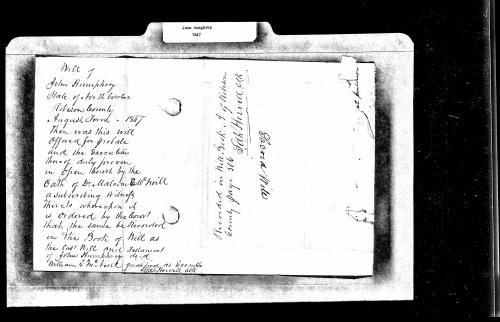 John Humphrey
1847
Will of
John Humphrey
State of North Carolina
Robeson County
August Term 1847
Then was this will
offered for probate
and the execution
thereof duly proven
in open Court by the
Oath of Dr Malcom McNeill
a subscribing witness
thereto whereupon it
is ordered by the Court
that the same be Recorded
in the Book of Will as
the last Will and testament
of John Humphrey decd
William McNeill qualified as Executor
Shad Howell Clk
Recorded in Will Book
County page 386
Shad Howell Clk